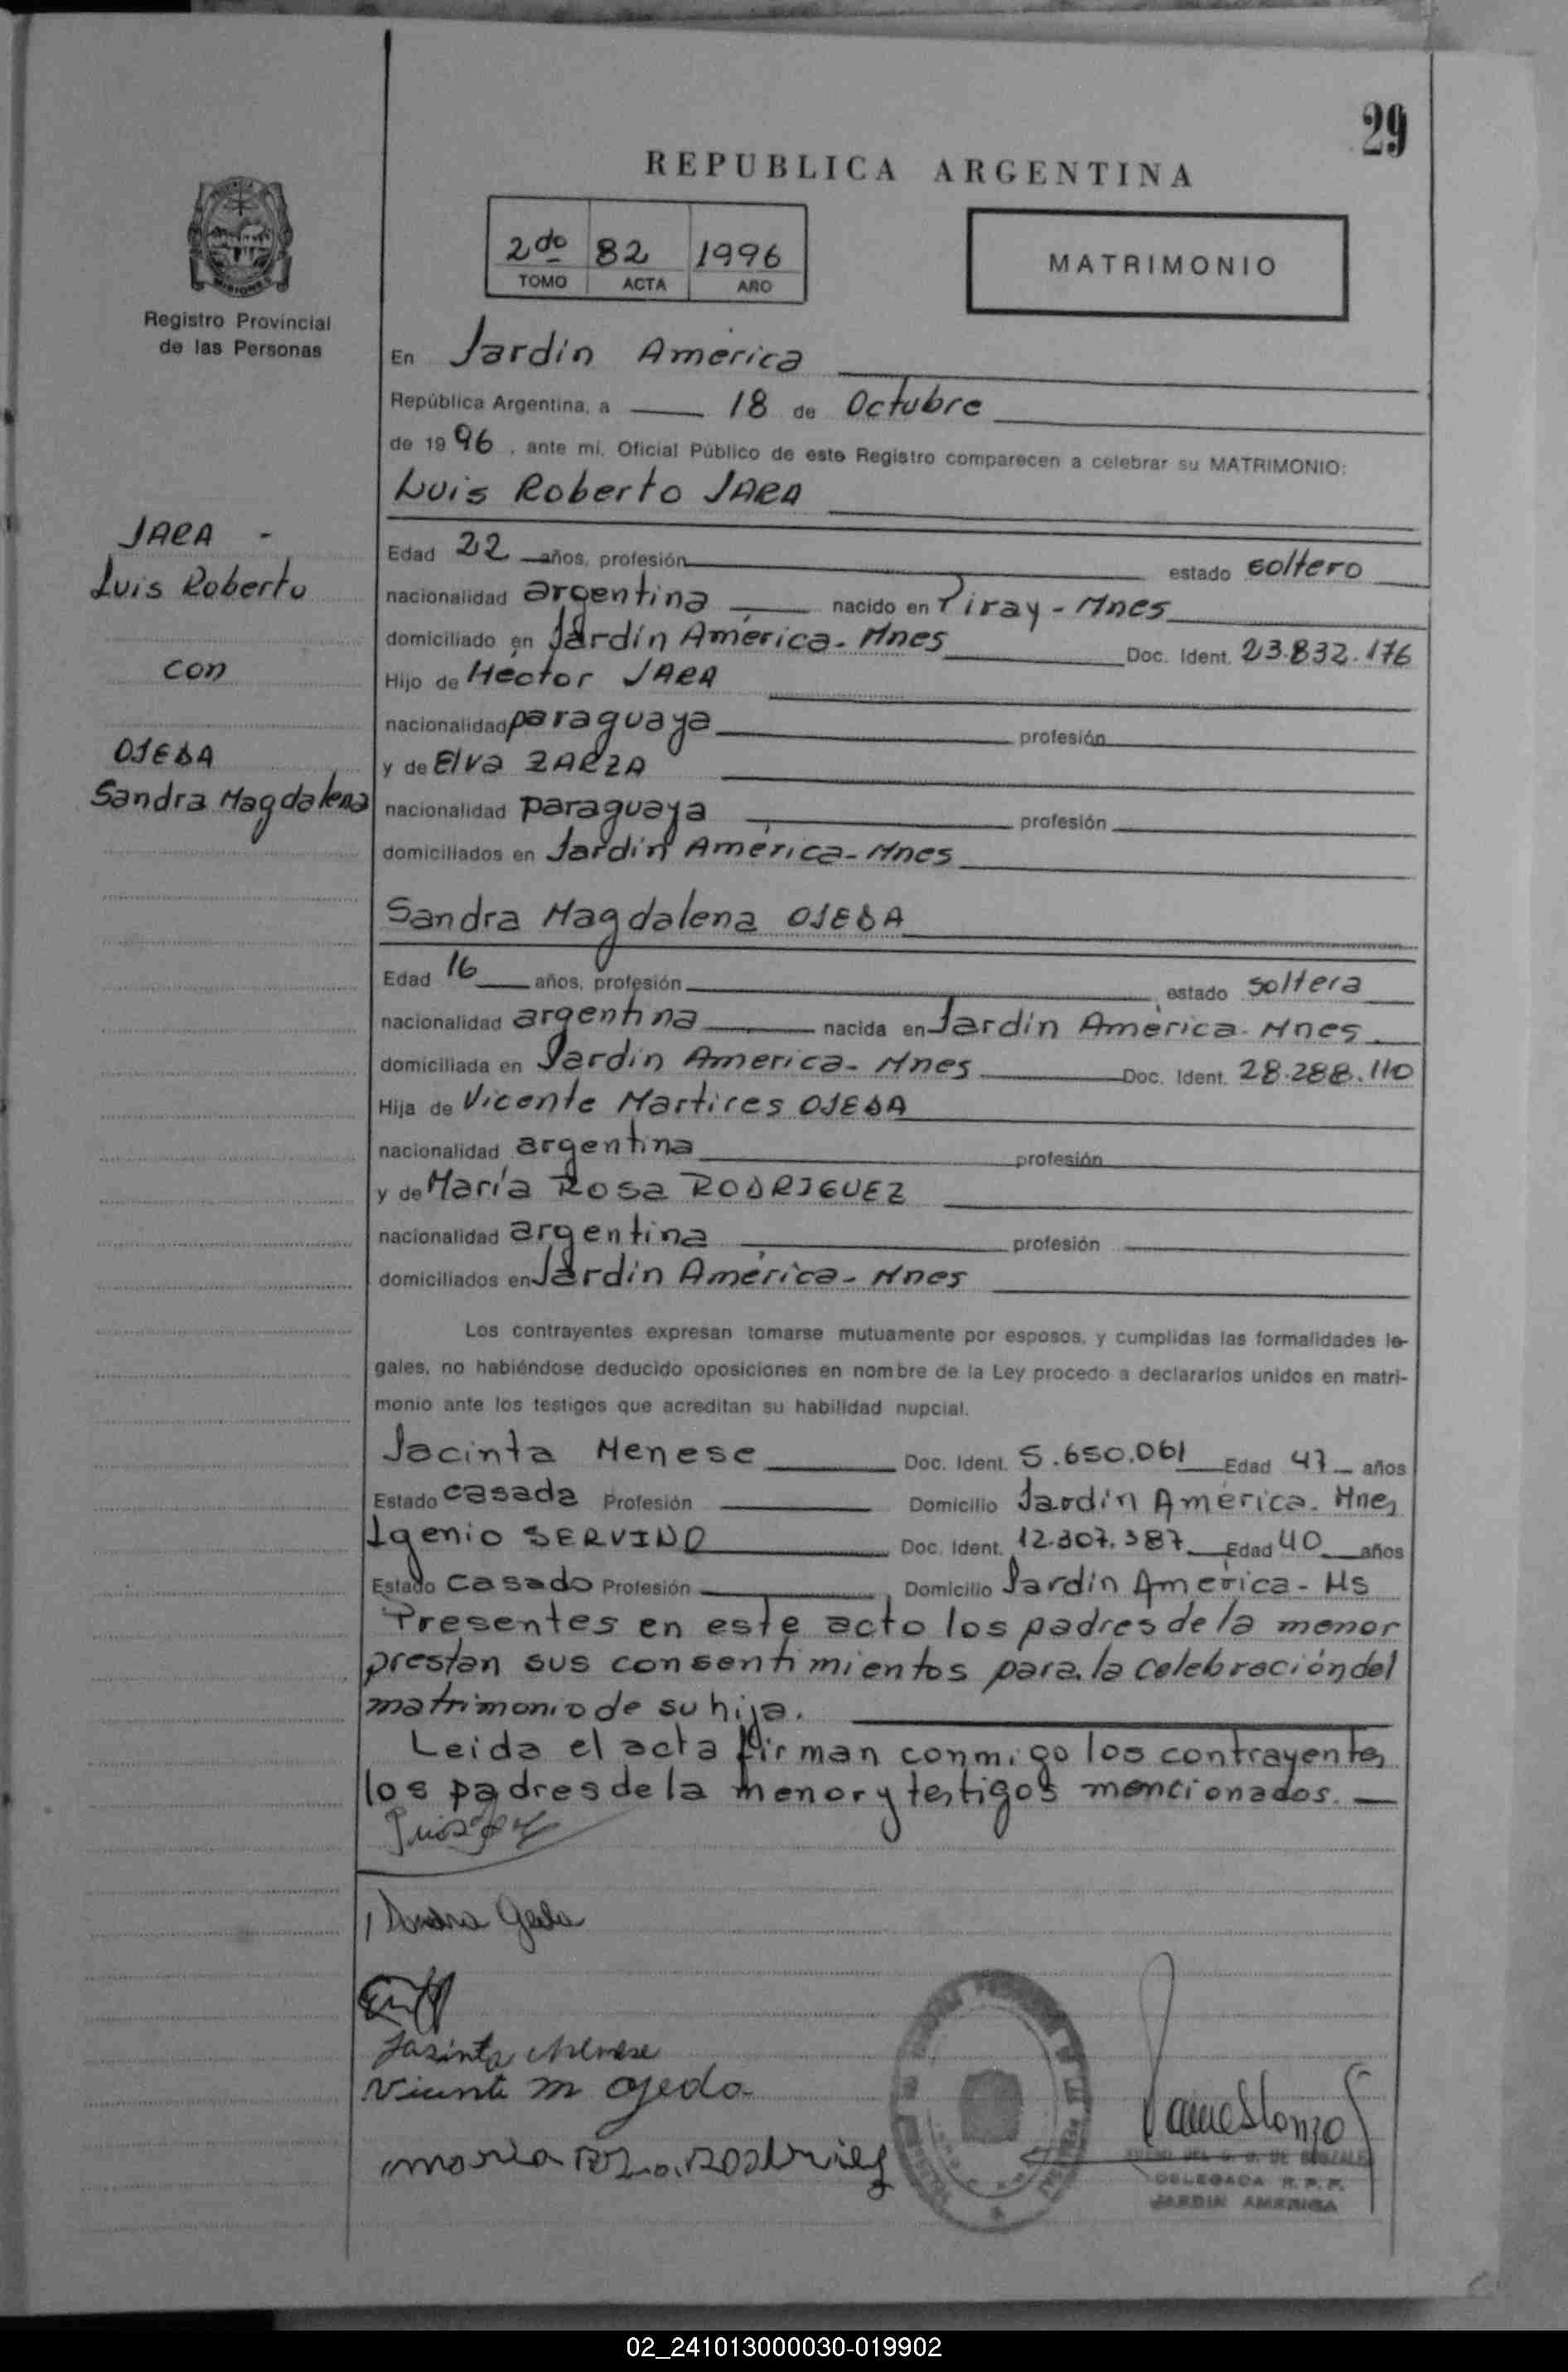 29
REPUBLICA ARGENTINA
2do 82 1996
TOMO ACTA AÑO
MATRIMONIO
MISIONES
Registro Provincial
de las Personas
En Jardín América
República Argentina, a 18 de Octubre
de 1996, ante mí, Oficial Público de este Registro comparecen a celebrar su MATRIMONIO:
Luis Roberto JARA
JARA -
Luis Roberto
con
OJEDA
Sandra Magdalena
Edad 22 años, profesión estado soltero
nacionalidad argentina nacido en Piray - Mnes
domiciliado en Jardín América - Mnes Doc. Ident. 23.832.176
Hijo de Héctor JARA
nacionalidad paraguaya profesión
y de Elva ZARZA
nacionalidad paraguaya profesión
domiciliados en Jardín América - Mnes
Sandra Magdalena OJEDA
Edad 16 años, profesión estado soltera
nacionalidad argentina nacida en Jardín América - Mnes
domiciliada en Jardín America - Mnes Doc. Ident. 28.288.110
Hija de Vicente Martires OJEDA
nacionalidad argentina profesión
y de María Rosa RODRIGUEZ
nacionalidad argentina profesión
domiciliados en Jardín América - Mnes
Los contrayentes expresan tomarse mutuamente por esposos, y cumplidas las formalidades le-
gales, no habiéndose deducido oposiciones en nombre de la Ley procedo a declararlos unidos en matri-
monio ante los testigos que acreditan su habilidad nupcial.
Jacinta Menese Doc. Ident. 5.650.061 Edad 47 años
Estado casada Profesión Domicilio Jardín América - Mnes
Igenio SERVIND Doc. Ident. 12.307.387 Edad 40 años
Estado casado Profesión Domicilio Jardín América - Ms
Presentes en este acto los padres de la menor
prestan sus consentimientos para la celebración del
matrimonio de su hija.
Leida el acta firman conmigo los contrayentes
los padres de la menor y testigos mencionados.
Jasinta Menese
Vicente M Ojeda
DELEGADA R. P. P.
JARDIN AMERICA
02_241013000030-019902